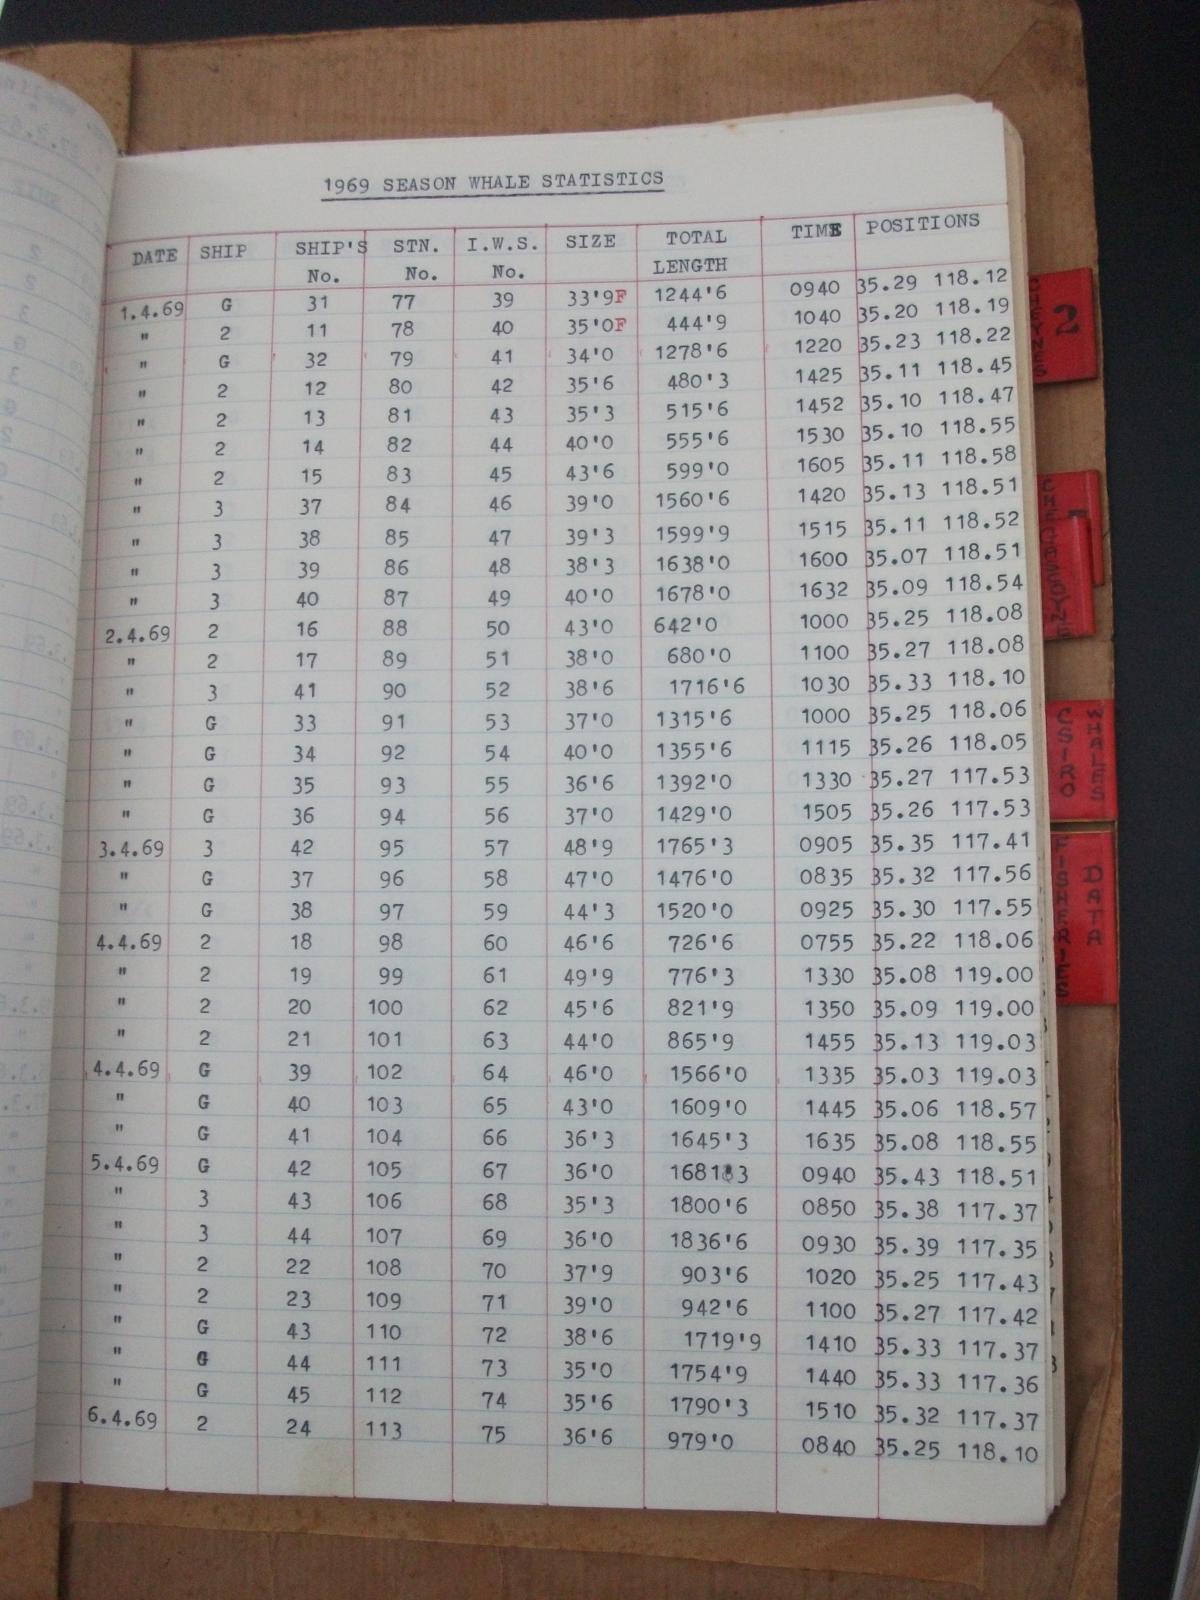 1969 SEASON WHALE STATISTICS
DATE SHIP SHIP'S No. STN. No. I.W.S. No. SIZE TOTAL LENGTH TIME POSITIONS
1.4.69 G 31 77 39 33'9F 1244'6 0940 35.29 118.12
" 2 11 78 40 35'0F 444'9 1040 35.20 118.19
" G 32 79 41 34'0 1278'6 1220 35.23 118.22
" 2 12 80 42 35'6 480'3 1425 35.11 118.45
" 2 13 81 43 35'3 515'6 1452 35.10 118.47
" 2 14 82 44 40'0 555'6 1530 35.10 118.55
" 2 15 83 45 43'6 599'0 1605 35.11 118.58
" 3 37 84 46 39'0 1560'6 1420 35.13 118.51
" 3 38 85 47 39'3 1599'9 1515 35.11 118.52
" 3 39 86 48 38'3 1638'0 1600 35.07 118.51
" 3 40 87 49 40'0 1678'0 1632 35.09 118.54
2.4.69 2 16 88 50 43'0 642'0 1000 35.25 118.08
" 2 17 89 51 38'0 680'0 1100 35.27 118.08
" 3 41 90 52 38'6 1716'6 1030 35.33 118.10
" G 33 91 53 37'0 1315'6 1000 35.25 118.06
" G 34 92 54 40'0 1355'6 1115 35.26 118.05
" G 35 93 55 36'6 1392'0 1330 35.27 117.53
" G 36 94 56 37'0 1429'0 1505 35.26 117.53
3.4.69 3 42 95 57 48'9 1765'3 0905 35.35 117.41
" G 37 96 58 47'0 1476'0 0835 35.32 117.56
" G 38 97 59 44'3 1520'0 0925 35.30 117.55
4.4.69 2 18 98 60 46'6 726'6 0755 35.22 118.06
" 2 19 99 61 49'9 776'3 1330 35.08 119.00
" 2 20 100 62 45'6 821'9 1350 35.09 119.00
" 2 21 101 63 44'0 865'9 1455 35.13 119.03
4.4.69 G 39 102 64 46'0 1566'0 1335 35.03 119.03
" G 40 103 65 43'0 1609'0 1445 35.06 118.57
" G 41 104 66 36'3 1645'3 1635 35.08 118.55
5.4.69 G 42 105 67 36'0 1681'3 0940 35.43 118.51
" 3 43 106 68 35'3 1800'6 0850 35.38 117.37
" 3 44 107 69 36'0 1836'6 0930 35.39 117.35
" 2 22 108 70 37'9 903'6 1020 35.25 117.43
" 2 23 109 71 39'0 942'6 1100 35.27 117.42
" G 43 110 72 38'6 1719'9 1410 35.33 117.37
" G 44 111 73 35'0 1754'9 1440 35.33 117.36
" G 45 112 74 35'6 1790'3 1510 35.32 117.37
6.4.69 2 24 113 75 36'6 979'0 0840 35.25 118.10
CHEYNES 2
CSIRO WHALES
FISHERIES DATA